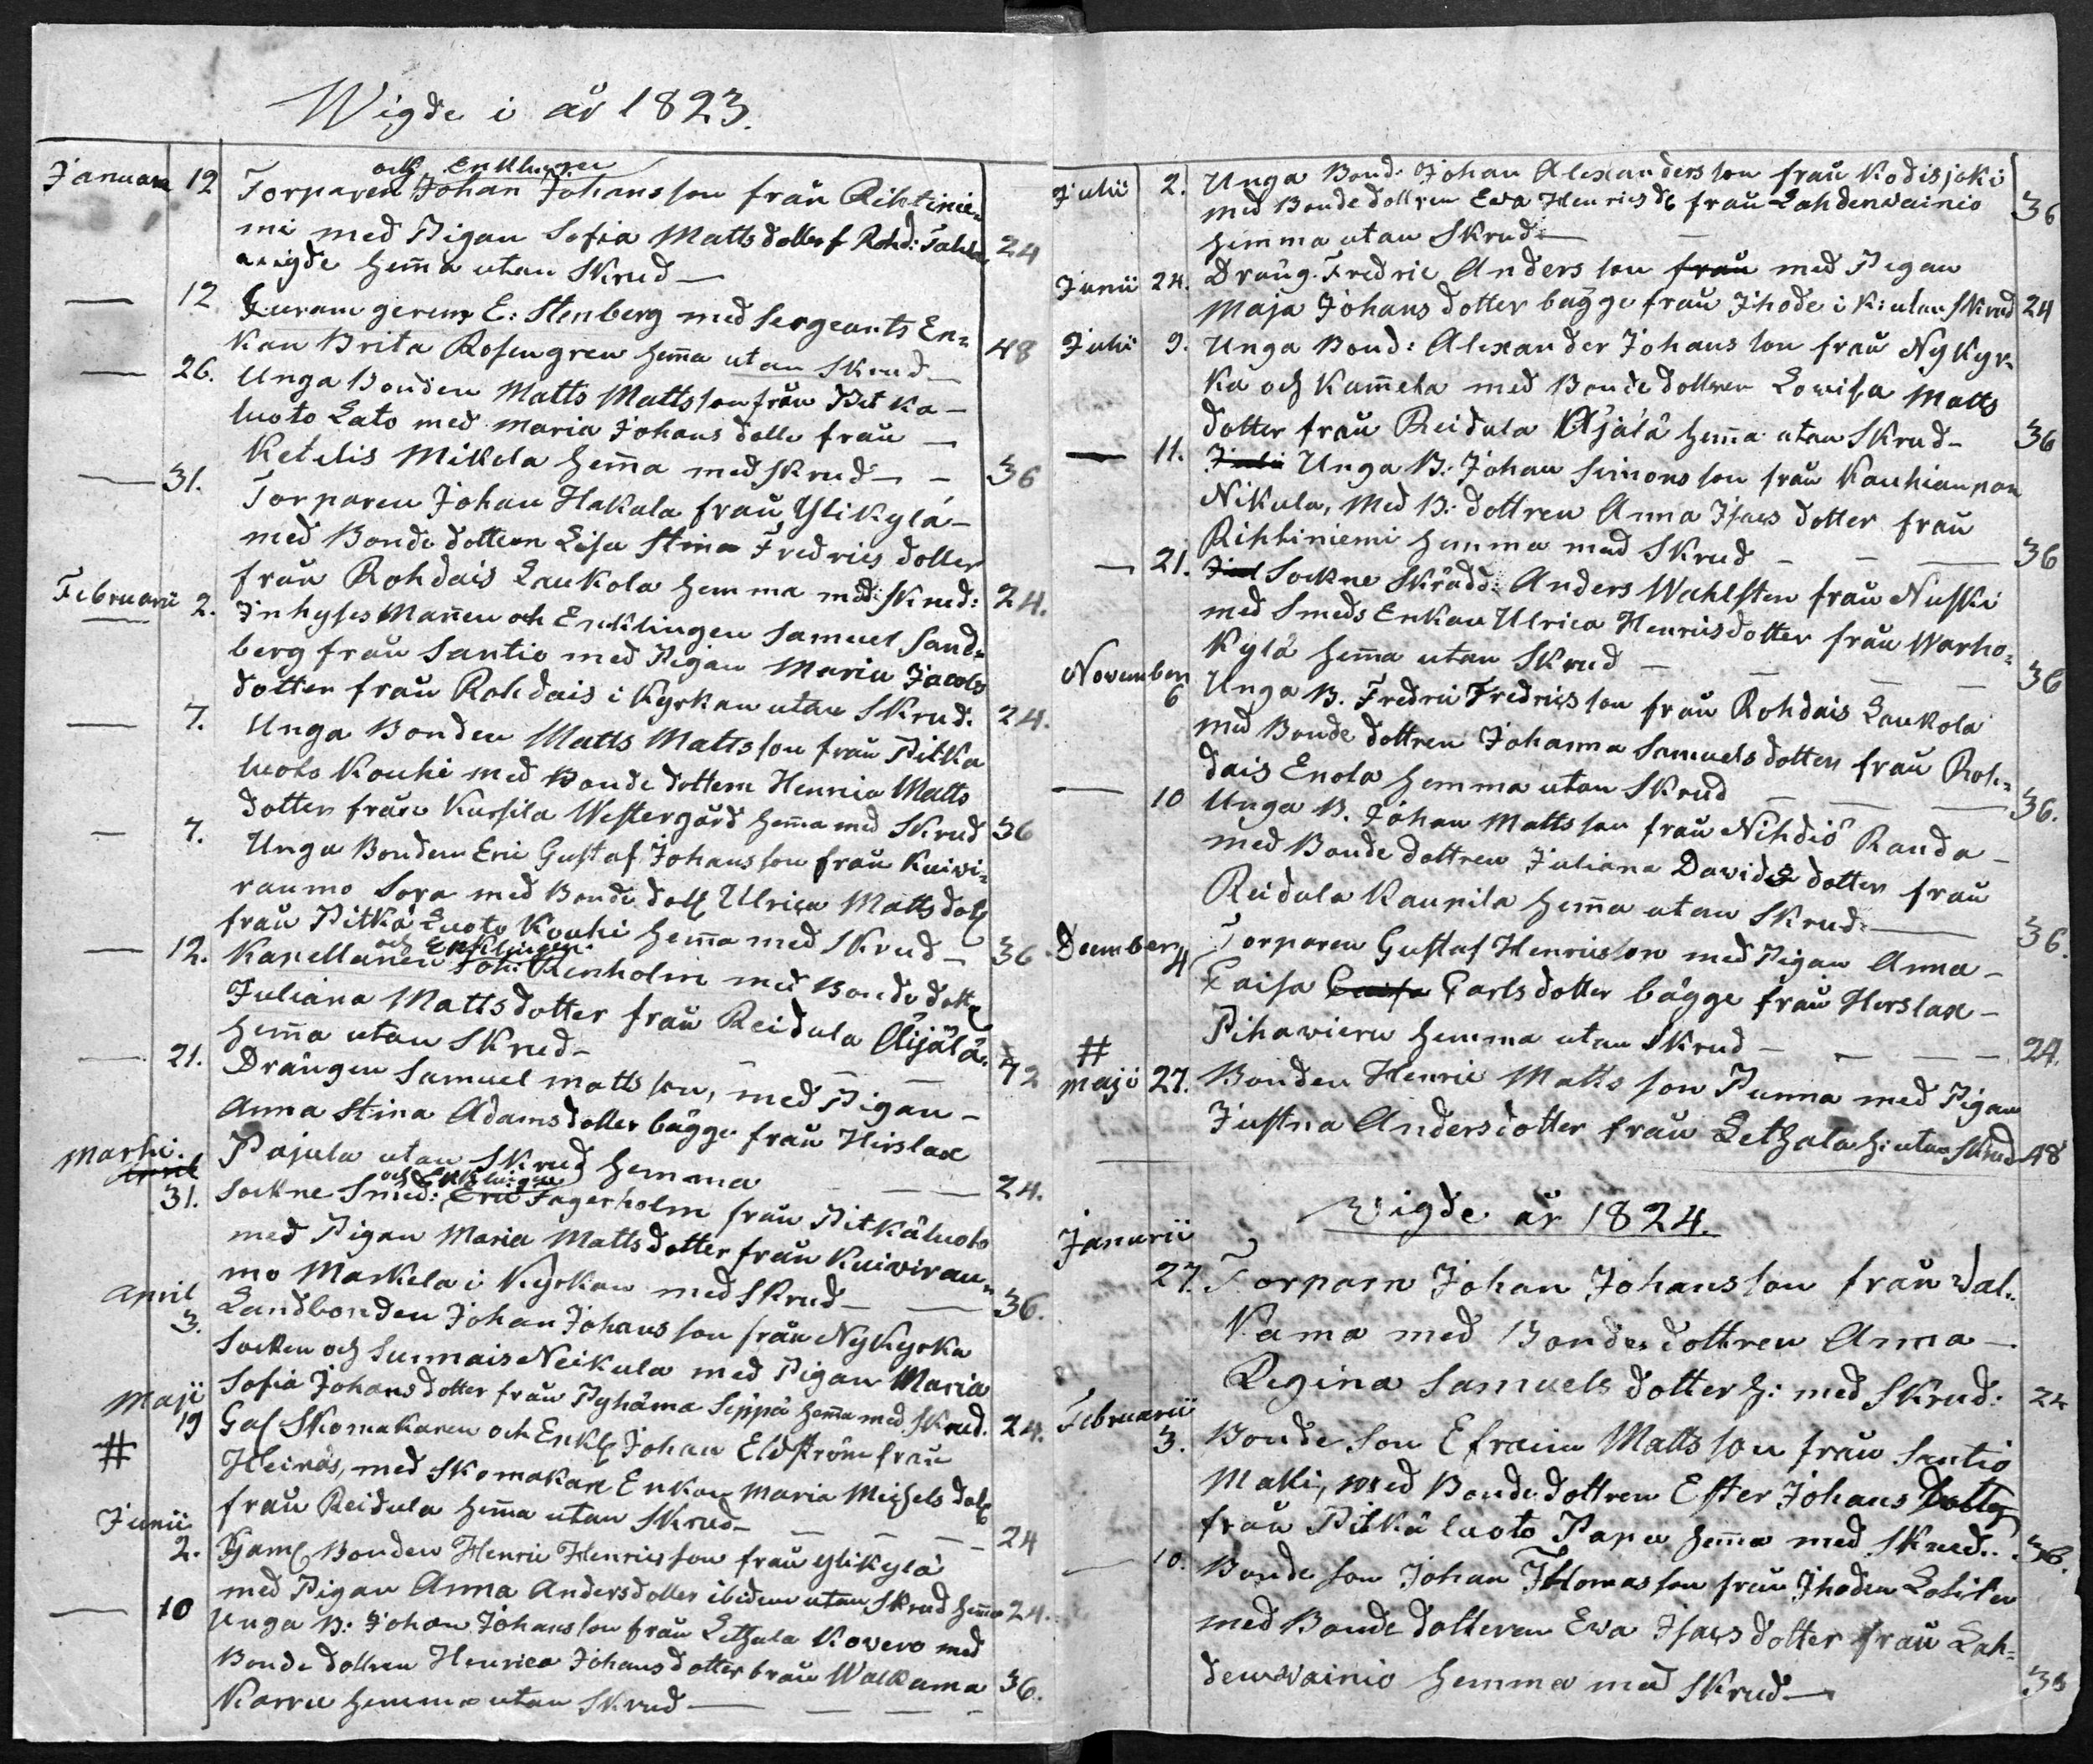 Wigde i år 1823.
och Enklingen
Januarii 12 Torparen Johan Johansson från Rihtinie=
mi med Pigan Sofia Matts dotter f Rohd: 24
wigde hema utan Skrud —
— 12 E: Stenberg med Sergeants En=
kan Brita Rosengren hema utan Skrud — 48
— 26. Unga Bonden Matts Mattsson från Pitka —
luoto Lato med Maria Johans dotte från —
Ketelis Mikola hema med Skrud — 36
— 31. Torparen Johan Hakala från Ylikylä —
med Bonde dottern Lisa Stina Fredrics dotter
från Rohdais Laukola hemma med Skrud: 24.
Februarii 2. Inhyses Mannen och Enklingen Samuel Sand=
berg från Santio med Pigan Maria Jacobs
dotter från Rohdais i Kyrkan utan Skrud. 24.
— 7. Unga Bonden Matts Mattsson från Pitka
luoto Kouhi med Bonde dottern Henrica Matts
dotter från Kursila Westergård hema med Skrud 36
— 7. Unga Bonden Eric Gustaf Johansson från Kuivi=
raumo Sora med Bonde dott Ulrica Matts dott
från Pitkä Luoto Kouhi hema med Skrud — 36
och Enklingen
— 12. Kapellanen Joh: Renholm med Bonde dott
Juliana Mattsdotter från Reidula Äijälä.
hema utan Skrud — 72
— 21. Drängen Samuel Mattsson, med Pigan —
Anna Stina Adams dotter bägge från Hirslax
Pajula utan Skrud hemma — 24.
och Enklingen
Martii. April 31. Sockne Smed: Eric Fagerholm från Pitkäluoto
med Pigan Maria Matts dotter från Kuivirau=
mo Markela i Kyrkan med Skrud — 36.
April 3. Landbonden Johan Johansson från Nykyrka
Socken och Sunnais Neikula med Pigan Maria
Sofia Johans dotter från Pyhäma Seppä hema med Skrud. 24.
Maji 19 Gaf Skomakaren och Enkl Johan Eldström från
# Heinäs, med Skomakare Enkan Maria Michels dott
från Reidula hema utan Skrud — 24
Junii 2. Gaml Bonden Henric Henricsson från Ylikylä
med Pigan Anna Andersdotter ibidem utan Skrud hema 24.
— 10 Unga B: Johan Johansson från Letzala Kovero med
Bonde dottren Henrica Johans dotter från Walkama 36.
Karru hemma utan Skrud —
Julii 2. Unga Bond: Johan Alexandersson från Kodisjoki
med Bonde dottren Ewa Henrics dr från Lahdenwainio 36
hemma utan Skrud —
Junii 24. Dräng. Fredric Andersson från med Pigan
Maja Johans dotter bägge från Ihode i K: utan Skrud 24
Juli 9. Unga Bond: Alexander Johansson från Nykyr=
ka och Kamela med Bonde dottren Lowisa Matts
dotter från Reidula Äjälä hema utan Skrud — 36
— 11. Juli Unga B: Johan Simonsson från Kauhianpää
Nikula, med B: dottren Anna Isacs dotter från
Rihtiniemi hemma med Skrud — 36
— 21. Jul Sockne Skrädd: Anders Wahlsten från Nuski
med Smeds Enkan Ulrica Henricsdotter från Warho=
kylä hema utan Skrud — 36
November 6 Unga B. Fredric Fredricsson från Rohdais Laukola
med Bonde dottren Johanna Samuels dotter från Roh=
dais Enola hemma utan Skrud — 36.
— 10 Unga B. Johan Mattsson från Nihdiö Randa —
med Bonde dottren Juliana Davids dotter från
Reidula Kaunila hema utan Skrud — 36.
December 4 Torparen Gustaf Henricsson med Pigan Anna —
Caisa Caisa Carls dotter bägge från Herslax —
Pihawieru hemma utan Skrud — 24.
#
Maji 27. Bonden Henric Mattsson Punna med Pigan
Justina Andersdotter från Letzala h: utan Skrud 48
Wigde år 1824.
Januarii 27. Torparn Johan Johansson från Wal=
kama med Bondes dottren Anna —
Regina Samuels dotter h: med Skrud: 24
Februarii 3. Bonde Son Efraim Mattsson från Santio
Matti, med Bonde dottren Ester Johans Dotter
från Pitkä luoto Papu hema med Skrud. 36.
— 10. Bonde son Johan Thomasson från Ihoden
med Bonde dotteren Ewa Isacs dotter från Lah=
denwainio hemma med Skrud — 36